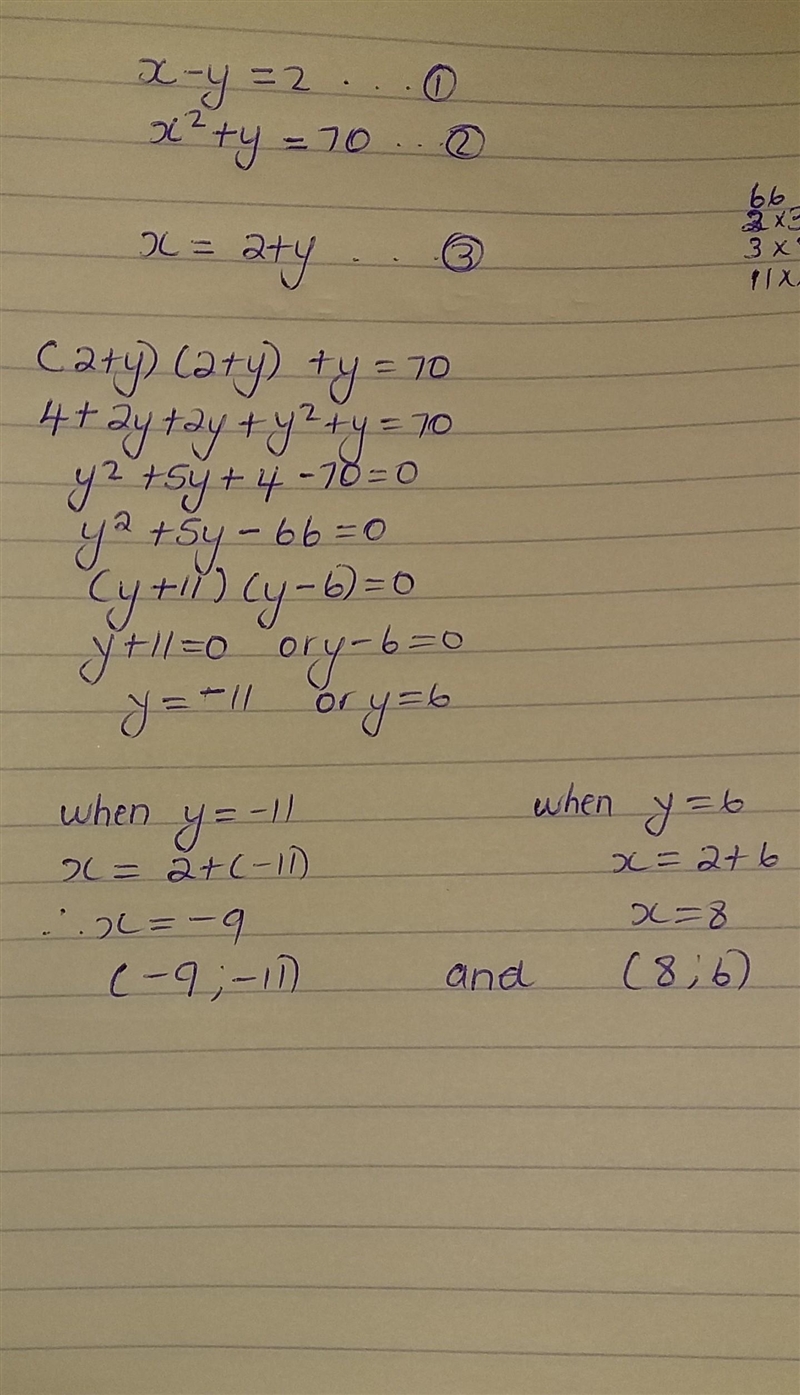 x - y = 2 . . . ①
x² + y = 70 . . ②
x = 2+y . . . ③
66
2 x 3
3 x
11 x
(2+y) (2+y) + y = 70
4 + 2y + 2y + y² + y = 70
y² + 5y + 4 - 70 = 0
y² + 5y - 66 = 0
(y + 11) (y - 6) = 0
y + 11 = 0 or y - 6 = 0
y = -11 or y = 6
when y = -11 when y = 6
x = 2 + (-11) x = 2 + 6
∴ x = -9 x = 8
(-9 ; -11) and (8 ; 6)